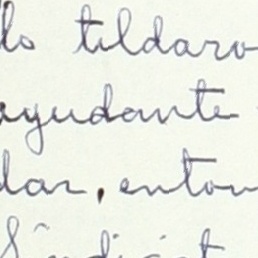 lo tildaro
ayudante
dar, enton